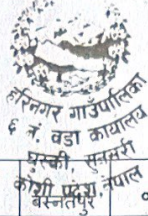 हरिनगर गाउँपालिका
६ नं. वडा कार्यालय
घुस्की सुनसरी
कोशी प्रदेश, नेपाल
बसन्तपुर